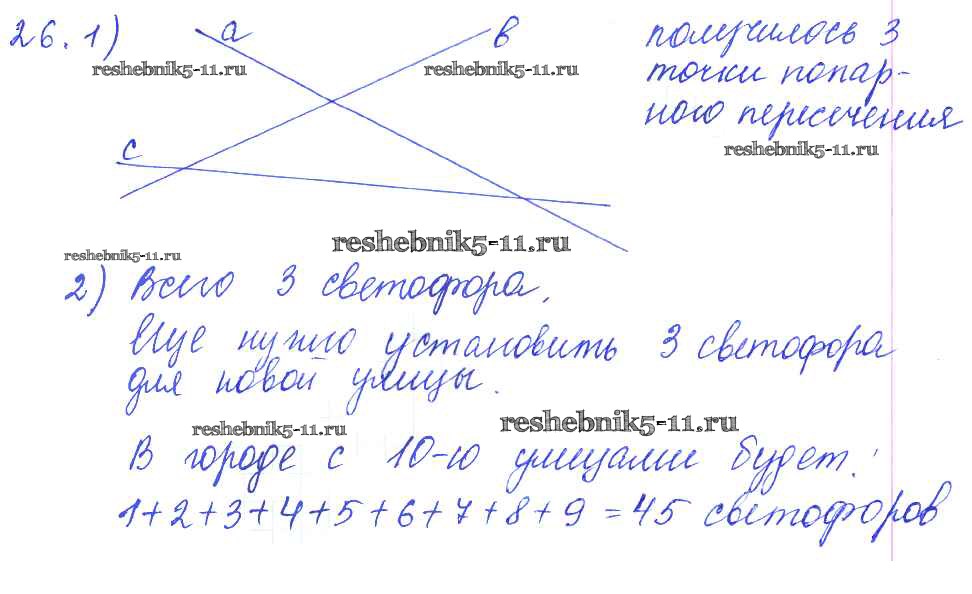 26. 1)
a
в
c
получилось 3
точки попар-
ного пересечения
reshebnik5-11.ru
reshebnik5-11.ru
reshebnik5-11.ru
reshebnik5-11.ru
reshebnik5-11.ru
2) Всего 3 светофора,
Еще нужно установить 3 светофора
для новой улицы.
reshebnik5-11.ru
reshebnik5-11.ru
В городе с 10-ю улицами будет:
1+2+3+4+5+6+7+8+9=45 светофоров